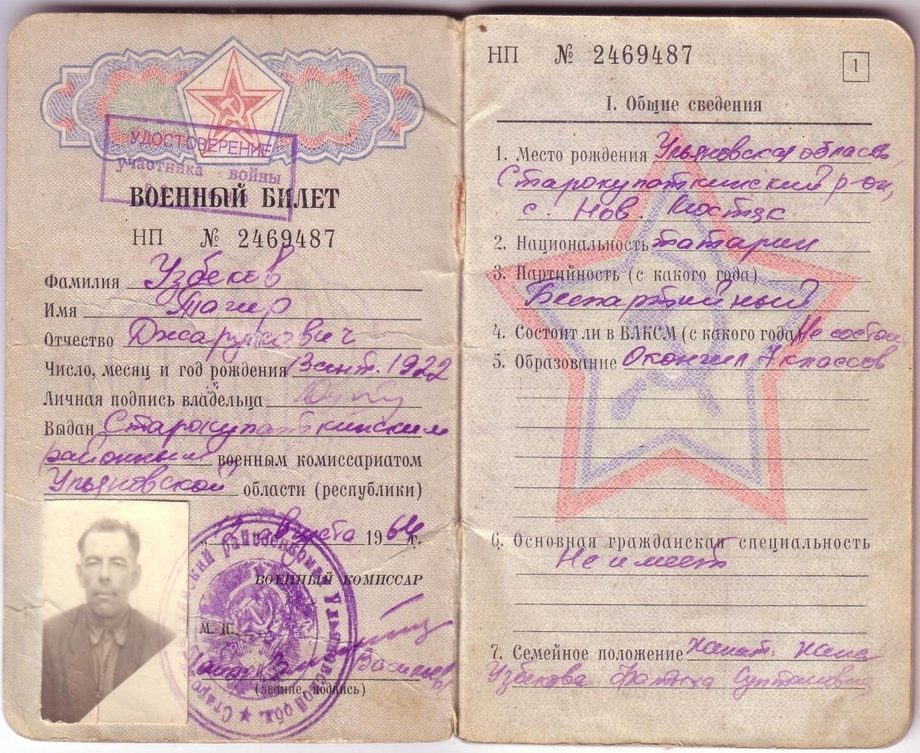 УДОСТОВЕРЕНИЕ
участника войны
ВОЕННЫЙ БИЛЕТ
НП № 2469487
Фамилия Узбеков
Имя Тагир
Отчество
Число, месяц и год рождения 13 сент. 1922
Личная подпись владельца
Выдан Старокулаткинским
районным военным комиссариатом
Ульяновской области (республики)
августа 1964 г.
ВОЕННЫЙ КОМИССАР
М. П.
(звание, подпись)
НП № 2469487
1
I. Общие сведения
1. Место рождения Ульяновская область,
Старокулаткинский р-он,
с. Нов. Мостяк
2. Национальность татарин
3. Партийность (с какого года)
Беспартийный
4. Состоит ли в ВЛКСМ (с какого года) Не состоит
5. Образование Окончил 7 классов
6. Основная гражданская специальность
Не имеет
7. Семейное положение Женат: жена
Узбекова Султановна